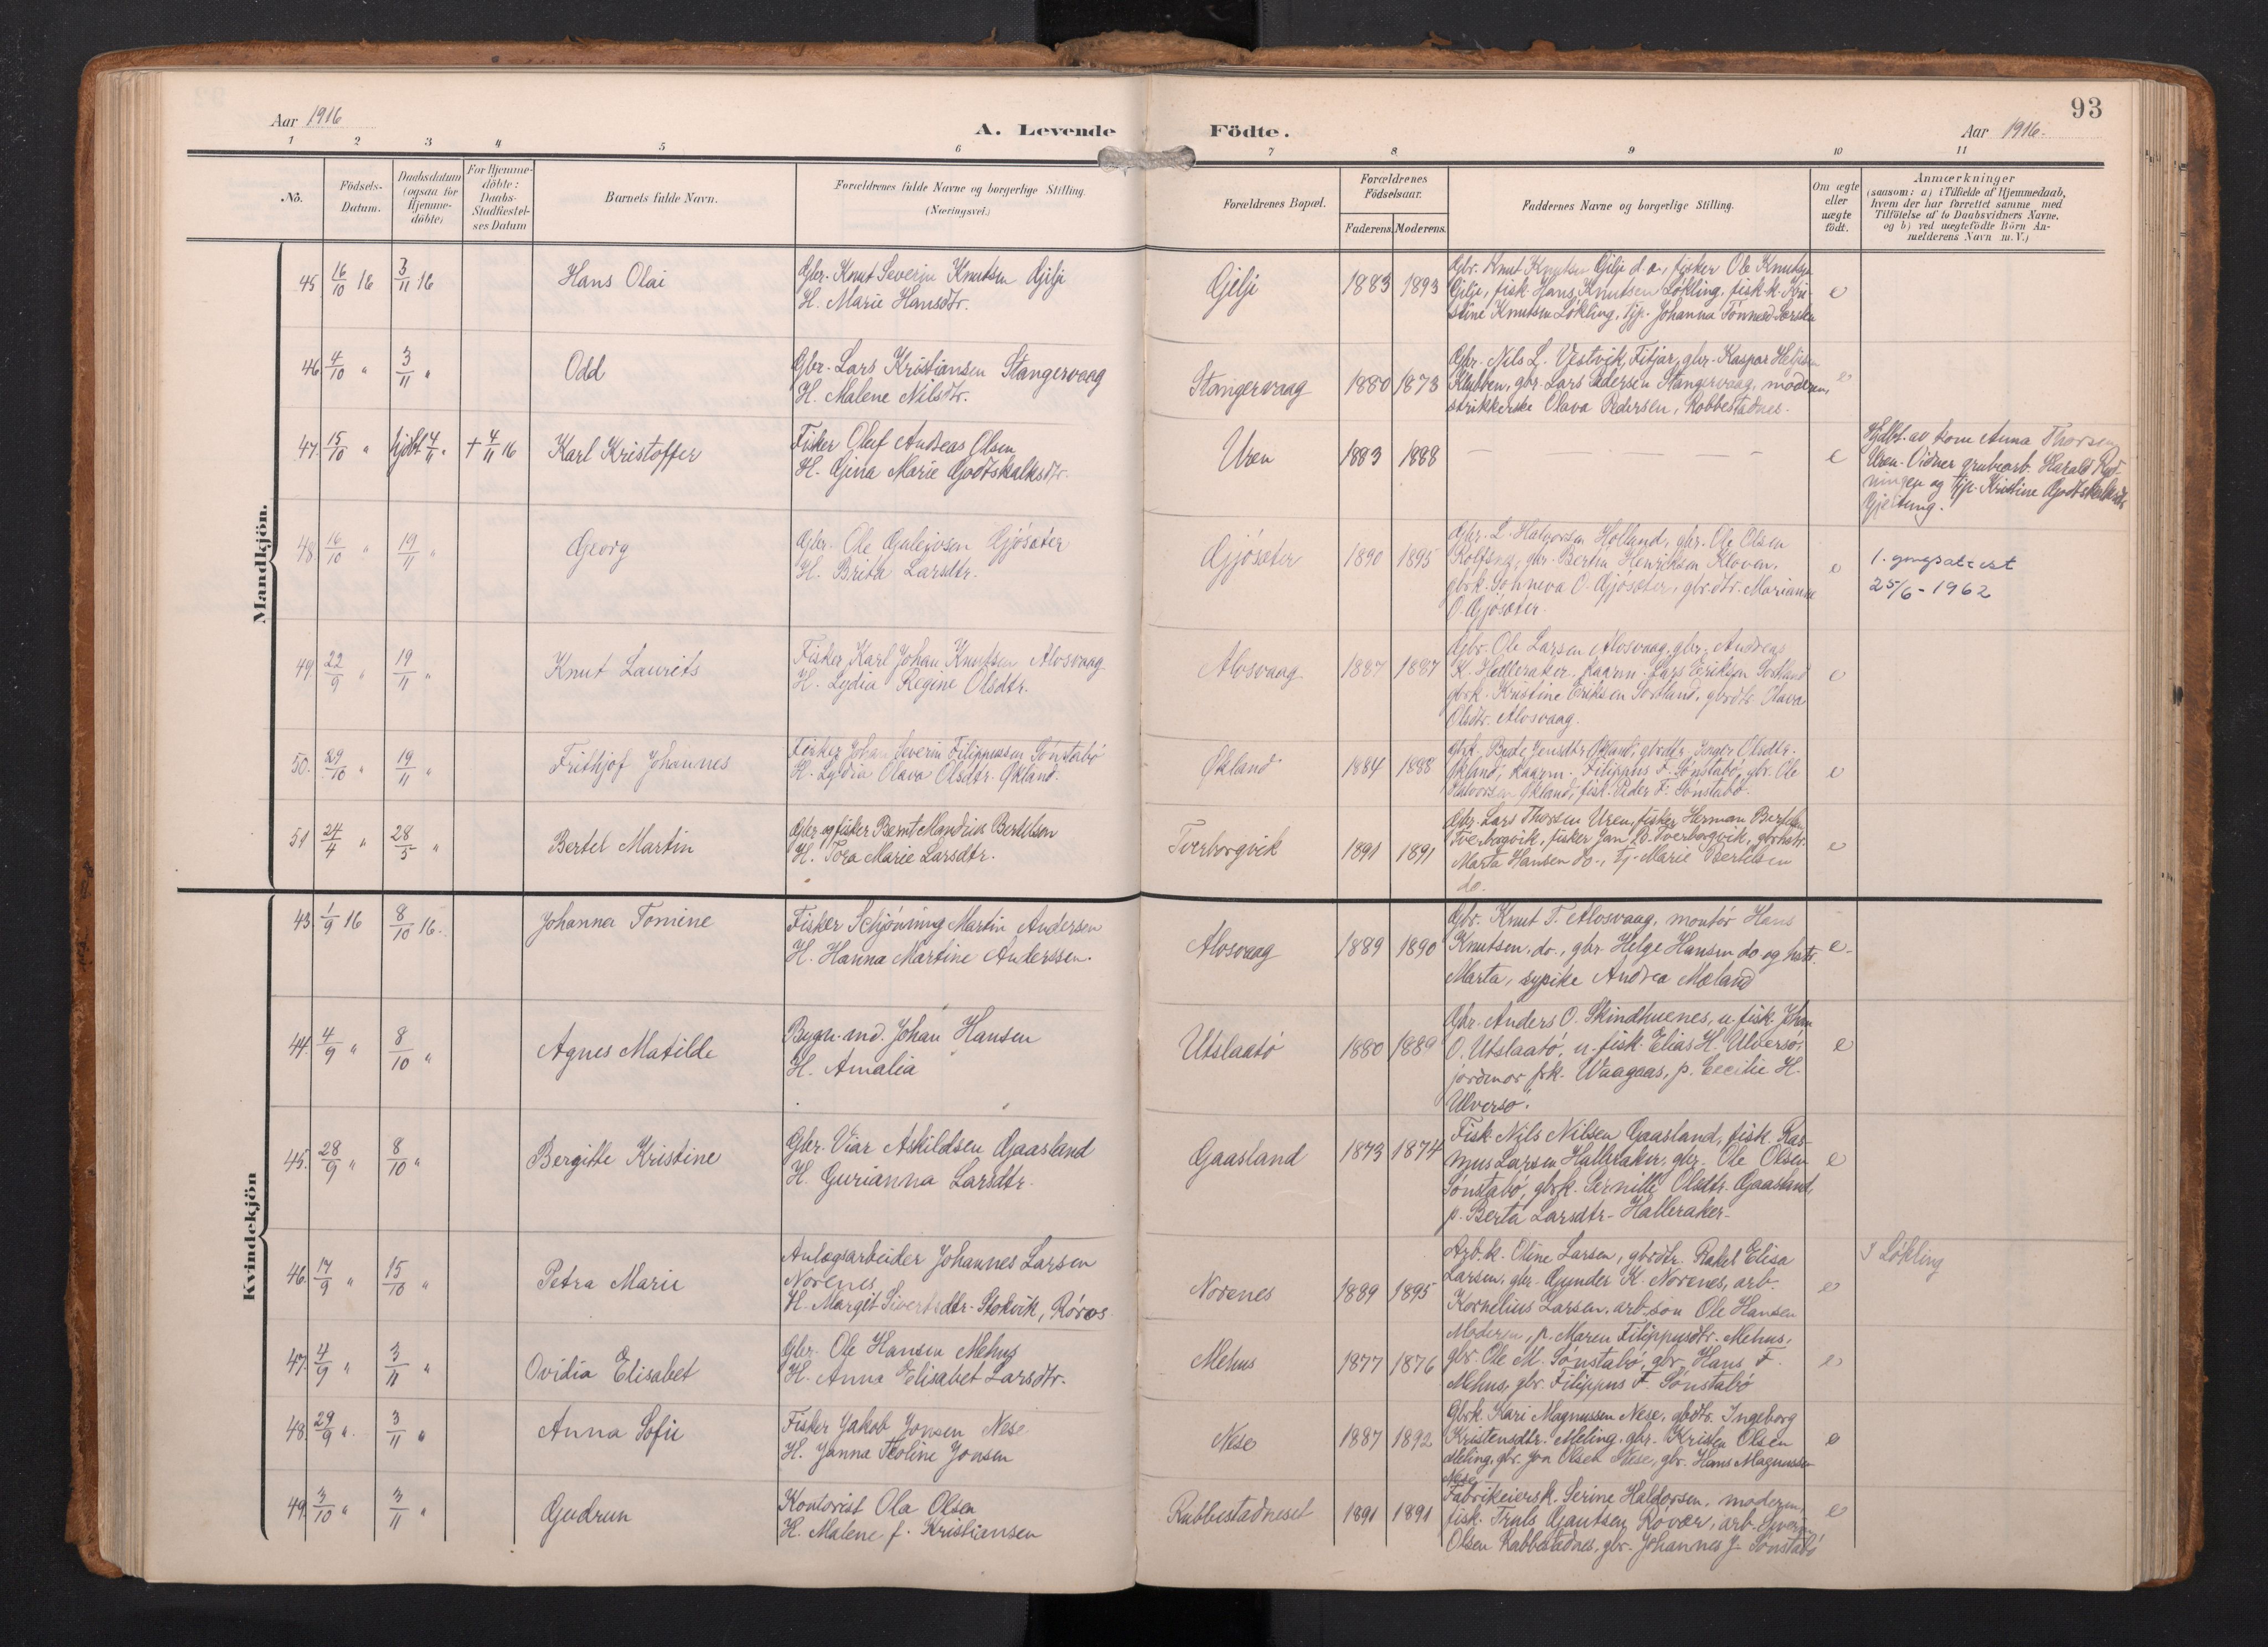 93
Aar 1916
A. Levende Födte.
Aar 1916.
1 2 3 4 5 6 7 8 9 10 11
No.
Födsels-Datum.
Daabsdatum (ogsaa for Hjemme-döbte)
For Hjemme-döbte: Daabs-Stadfæstel-ses Datum
Barnets fulde Navn.
Forældrenes fulde Navne og borgerlige Stilling.
(Næringsvei.)
Forældrenes Bopæl.
Forældrenes Födselsaar.
Faderens. Moderens.
Faddernes Navne og borgerlige Stilling.
Om ægte eller uægte födt.
Anmærkninger
(saasom: a) i Tilfælde af Hjemmedaab,
hvem der har forrettet samme med
Tilföielse af to Daabsvidners Navne.
og b) ved uægtefödte Börn An-
melderens Navn m. V.)
Mandkjön.
45 16/10 16 3/11 16 Hans Olai
Gbr. Knut Severin Knutsen Gjilje
H. Marie Hansdtr.
Gjilje 1883 1893
Gbr. Knut Knutsen Gjilje d.o., fisker Ole Knutsen
Gilje, fisk. Hans Knutsen Løkling, fisk. k. Kri-
stine Knutsen Løkling, tjp. Johanna
e
46 4/10 " 3/11 " Odd
Gbr. Lars Kristiansen Stangervaag
H. Malene Nilsdtr.
Stangervaag 1880 1873
Gbr. Nils L. Vestvik, Fitjar, gbr. Kaspar Heljesen
Klubben, gbr. Lars Pedersen Stangervaag, moderen,
strikkerske Olava Pedersen, Robbestadnes.
e
47. 15/10 " hjdbt. 4/11 " + 4/11 16 Karl Kristoffer
Fisker Oluf Andreas Olsen
H. Gjina Marie Godtskalksdtr.
Uren 1883 1888
— — — — —
e
Hjdbt. av kone Anna Thorsen
Uren. Vidner grubearb. Harald Ryd-
ningen og tjp. Kristine Godtskalksdtr.
48 16/10 " 19/11 " Georg
Gbr. Ole Guleivsen Gjøsæter
H. Brita Larsdtr.
Gjøsæter 1890 1895
Gbr. L. Halvorsen Holland, gbr. Ole Olsen
Rolfsnes, gbr. Bertin Henriksen Kloven,
gbrk. Sønneva O. Gjøsæter, gbrdtr. Marianne
O. Gjøsæter.
e
25/6 - 1962
49. 22/9 " 19/11 " Knut Laurits
Fisker Karl Johan Knutsen Alosvaag
H. Lydia Regine Olsdtr.
Alosvaag 1887 1887
Gbr. Ole Larsen Alosvaag, gbr. Andreas
K. Halleraker, kaarm. Lars Eriksen Sortland
gbrk. Kristine Eriksen Sortland, gbrdtr. Olava
Olsdtr. Alosvaag.
e
50. 29/10 " 19/11 " Frithjof Johannes
Fisker Johan Severin Filippussen Sønstabø
H. Lydia Olava Olsdtr. Økland.
Økland 1884 1888
gbrk. Berte Jensdtr. Økland, gbrdtr. Inger Olsdtr.
Økland, kaarm. Filippus F. Sønstabø, gbr. Ole
Halvorsen Økland, fisk. Peder F. Sønstabø.
e
51 24/4 " 28/5 " Bertel Martin
Gbr. og fisker Bernt Mandius Bertelsen
H. Tora Marie Larsdtr.
Tverborgvik 1891 1891
Gbr. Lars Thorsen Uren, fisker Herman Bertelsen
Tverborgvik, fisker Jan B. Tverborgvik, gbrhstr.
Marta Hansen do., tj. Marie Bertelsen
do.
e
Kvindekjön
43. 1/9 16 8/10 16. Johanna Tomine
Fisker Schjönning Martin Andersen
H. Hanna Martine Anderssen.
Alosvaag 1889 1890
Gbr. Knut T. Alosvaag, montör Hans
Knutsen, do., gbr. Helge Hansen do og hstr.
Marta, sypike Andrea Mæland
e.
44. 4/9 " 8/10 " Agnes Matilde
Bygn. md. Johan Hansen
H. Amalia "
Utslaatø 1880 1889
Gbr. Anders O. Skindhuenes, u. fisk. Johan
O. Utslaatø, u. fisk. Elias H. Ulversø,
jordmor frk. Waagaas, p. Cecilie H.
Ulversø.
e
45. 28/9 " 8/10 " Bergitte Kristine
Gbr. Viar Askildsen Gaasland
H. Gurianna Larsdtr.
Gaasland 1873 1874
Fisk. Nils Nilsen Gaasland, fisk. Ras-
mus Larsen Halleraker, gbr. Ole Olsen
Sønstabø, gbrk. Pernille Olsdtr. Gaasland,
p. Berta Larsdtr. Halleraker.
e
46. 17/9 " 15/10 " Petra Marie
Anlægsarbeider Johannes Larsen
Norenes
H. Margit Sivertsdtr. Stokvik, Røros.
Norenes 1889 1895
Arb. k. Oline Larsen, gbrdtr. Rakel Elisa
Larsen, gbr. Gunder K. Norenes, arb.
Kornelius Larsen, arb. søn Ole Hansen
e
I Løkling
47. 4/9 " 3/11 " Ovidia Elisabet
Gbr. Ole Hansen Mehus
H. Anna Elisabet Larsdtr.
Mehus 1877 1876
Moderen, p. Maren Filippusdtr. Mehus,
gbr. Ole M. Sønstabø, gbr. Hans F.
Mehus, gbr. Filippus F. Sønstabø
e
48. 29/9 ". 3/11 " Anna Sofie
Fisker Jakob Jonsen Nese
H. Janna Toline Jonsen
Nese 1887 1892
Gbrk. Kari Magnussen Nese, gbdtr. Ingeborg
Kristensdtr. Meling, gbr. Kristen Olsen
Meling, gbr. Jon Olsen Nese, gbr. Hans Magnussen
Nese
e
49. 3/10 " 3/11 " Gudrun
Kontorist Ola Olsen
H. Malene f. Kristiansen
Rubbestadneset 1891 1891
Fabrikeiersk. Serine Haldorsen, moderen,
fisk. Truls Gautsen Røvær, arb. Sverre
Olsen Rabbestadnes, gbr. Johannes J. Sønstabø
e